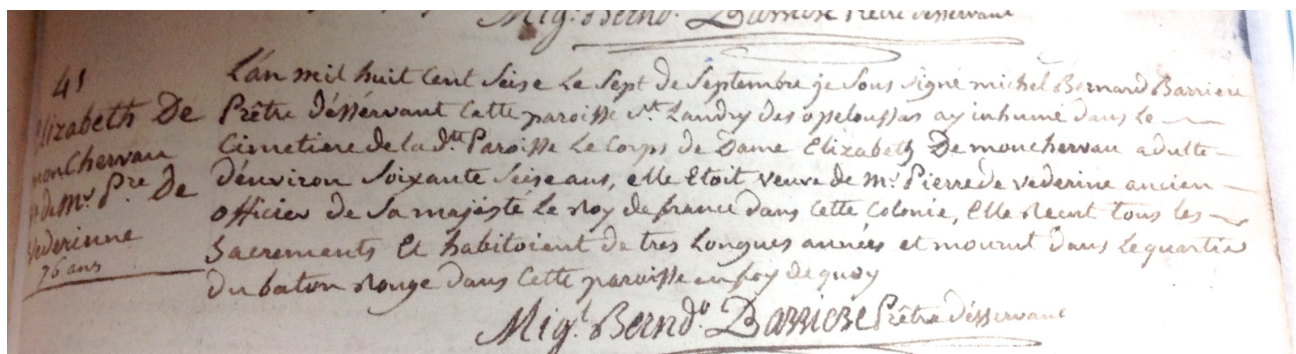 Mig.l Bernd.o Barriere Prêtre désservant
41
Elizabeth De
monChervau
v.e de m.r P.re De
Vederinne
76 ans
L'an mil huit Cent Seise Le Sept de Septembre je Sous signé michel Bernard Barriere
Prêtre désservant Cette paroisse S.t Landry des opeloussas ay inhumé dans Le
Cimetiere de la d.tte Paroisse Le Corps de Dame Elizabeth De monchervau adulte
d'énviron Soixante Seise ans, elle Etoit veuve de M.r Pierre de vederine ancien
officier de Sa majésté Le roy de france dans Cette Colonie, Elle recut tous les
Sacrements Et habitoient de tres Longues années et mourut dans Le quartier
du baton rouge dans Cette paroisse en foy de quoy
Mig.l Bernd.o Barriere Prêtre désservant